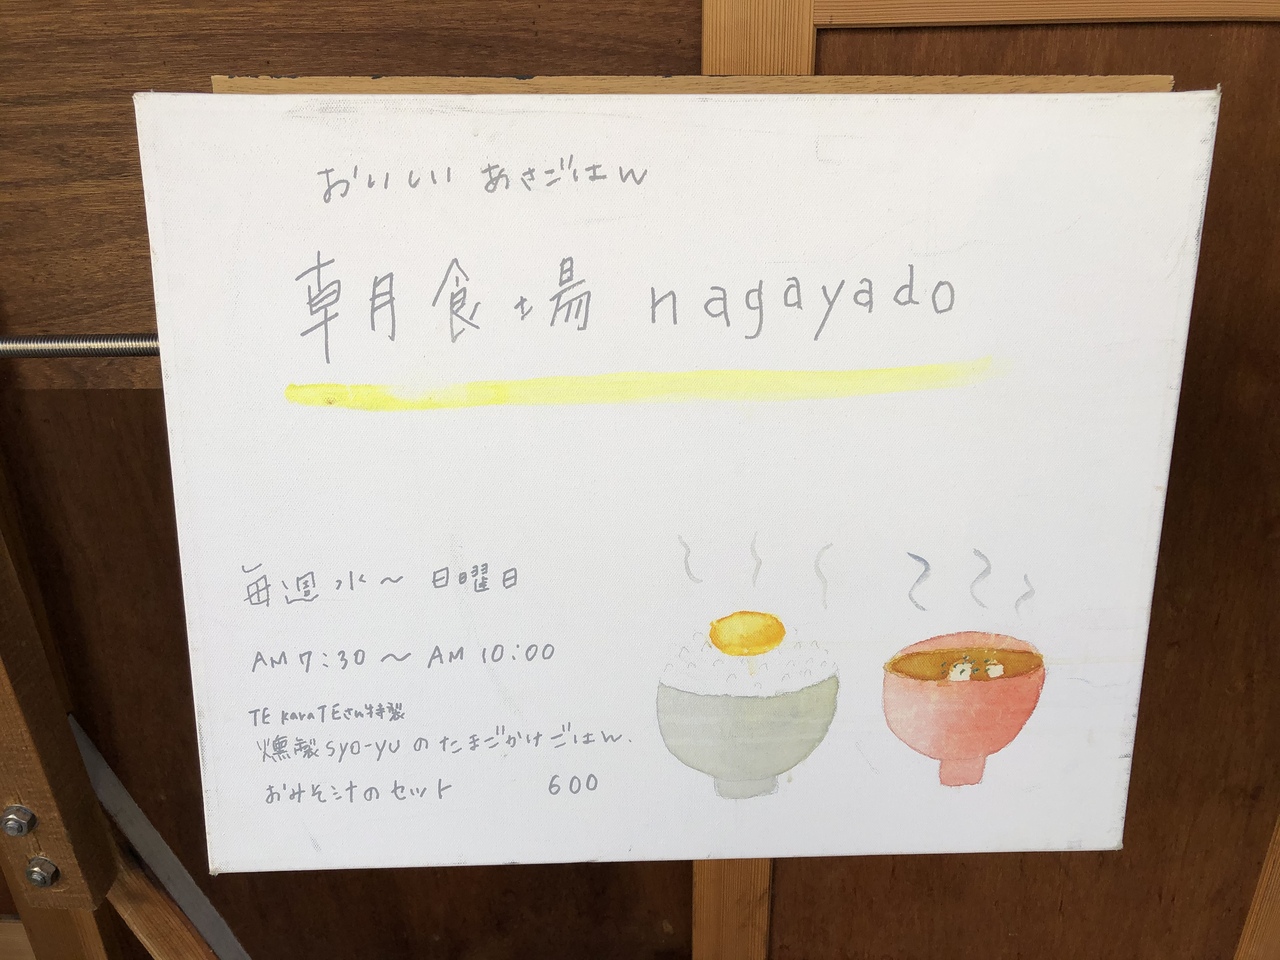 おいしい あさごはん
朝食場 nagayado
毎週 水〜日曜日
AM 7:30 〜 AM 10:00
TE kara TEさん特製
燻製 syo-yu のたまごかけごはん.
おみそ汁のセット 600